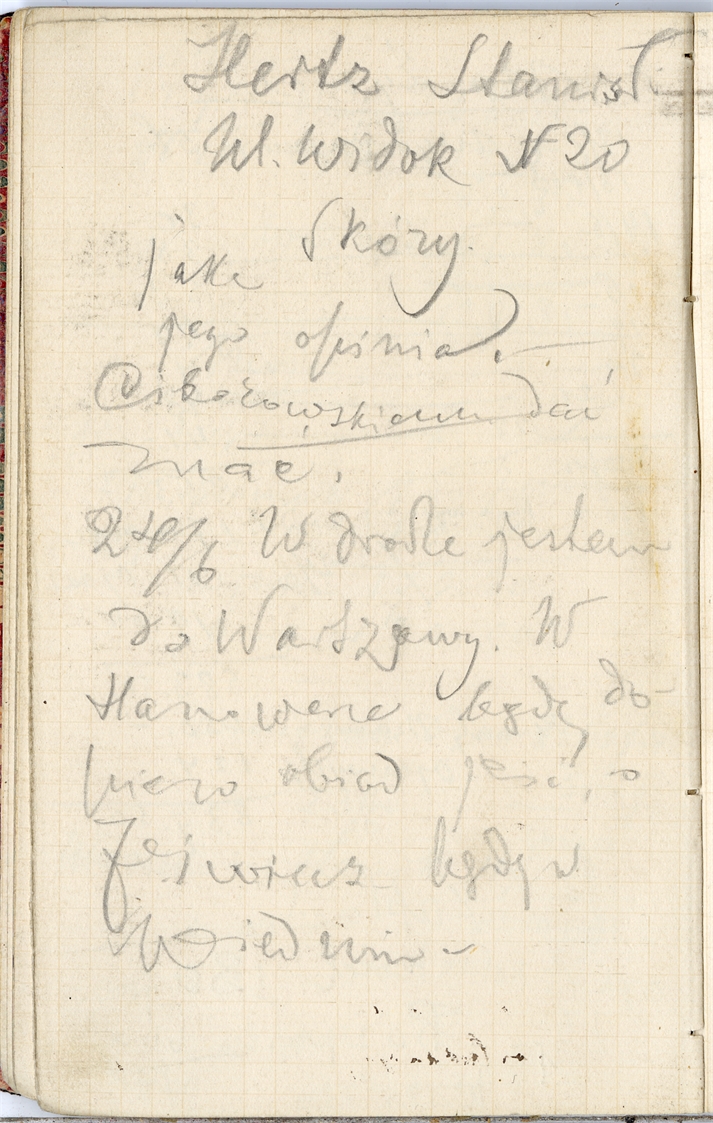 Hertz Stanisł.
Ul. Widok N 20
Skóry.
jaka
jego opinia. —
Ciborowskiemu dać
znać.
24/6 W drodze jestem
do Warszawy. W
Hanowerze będę do-
piero obiad jeść, a
będę w
Wiedniu –